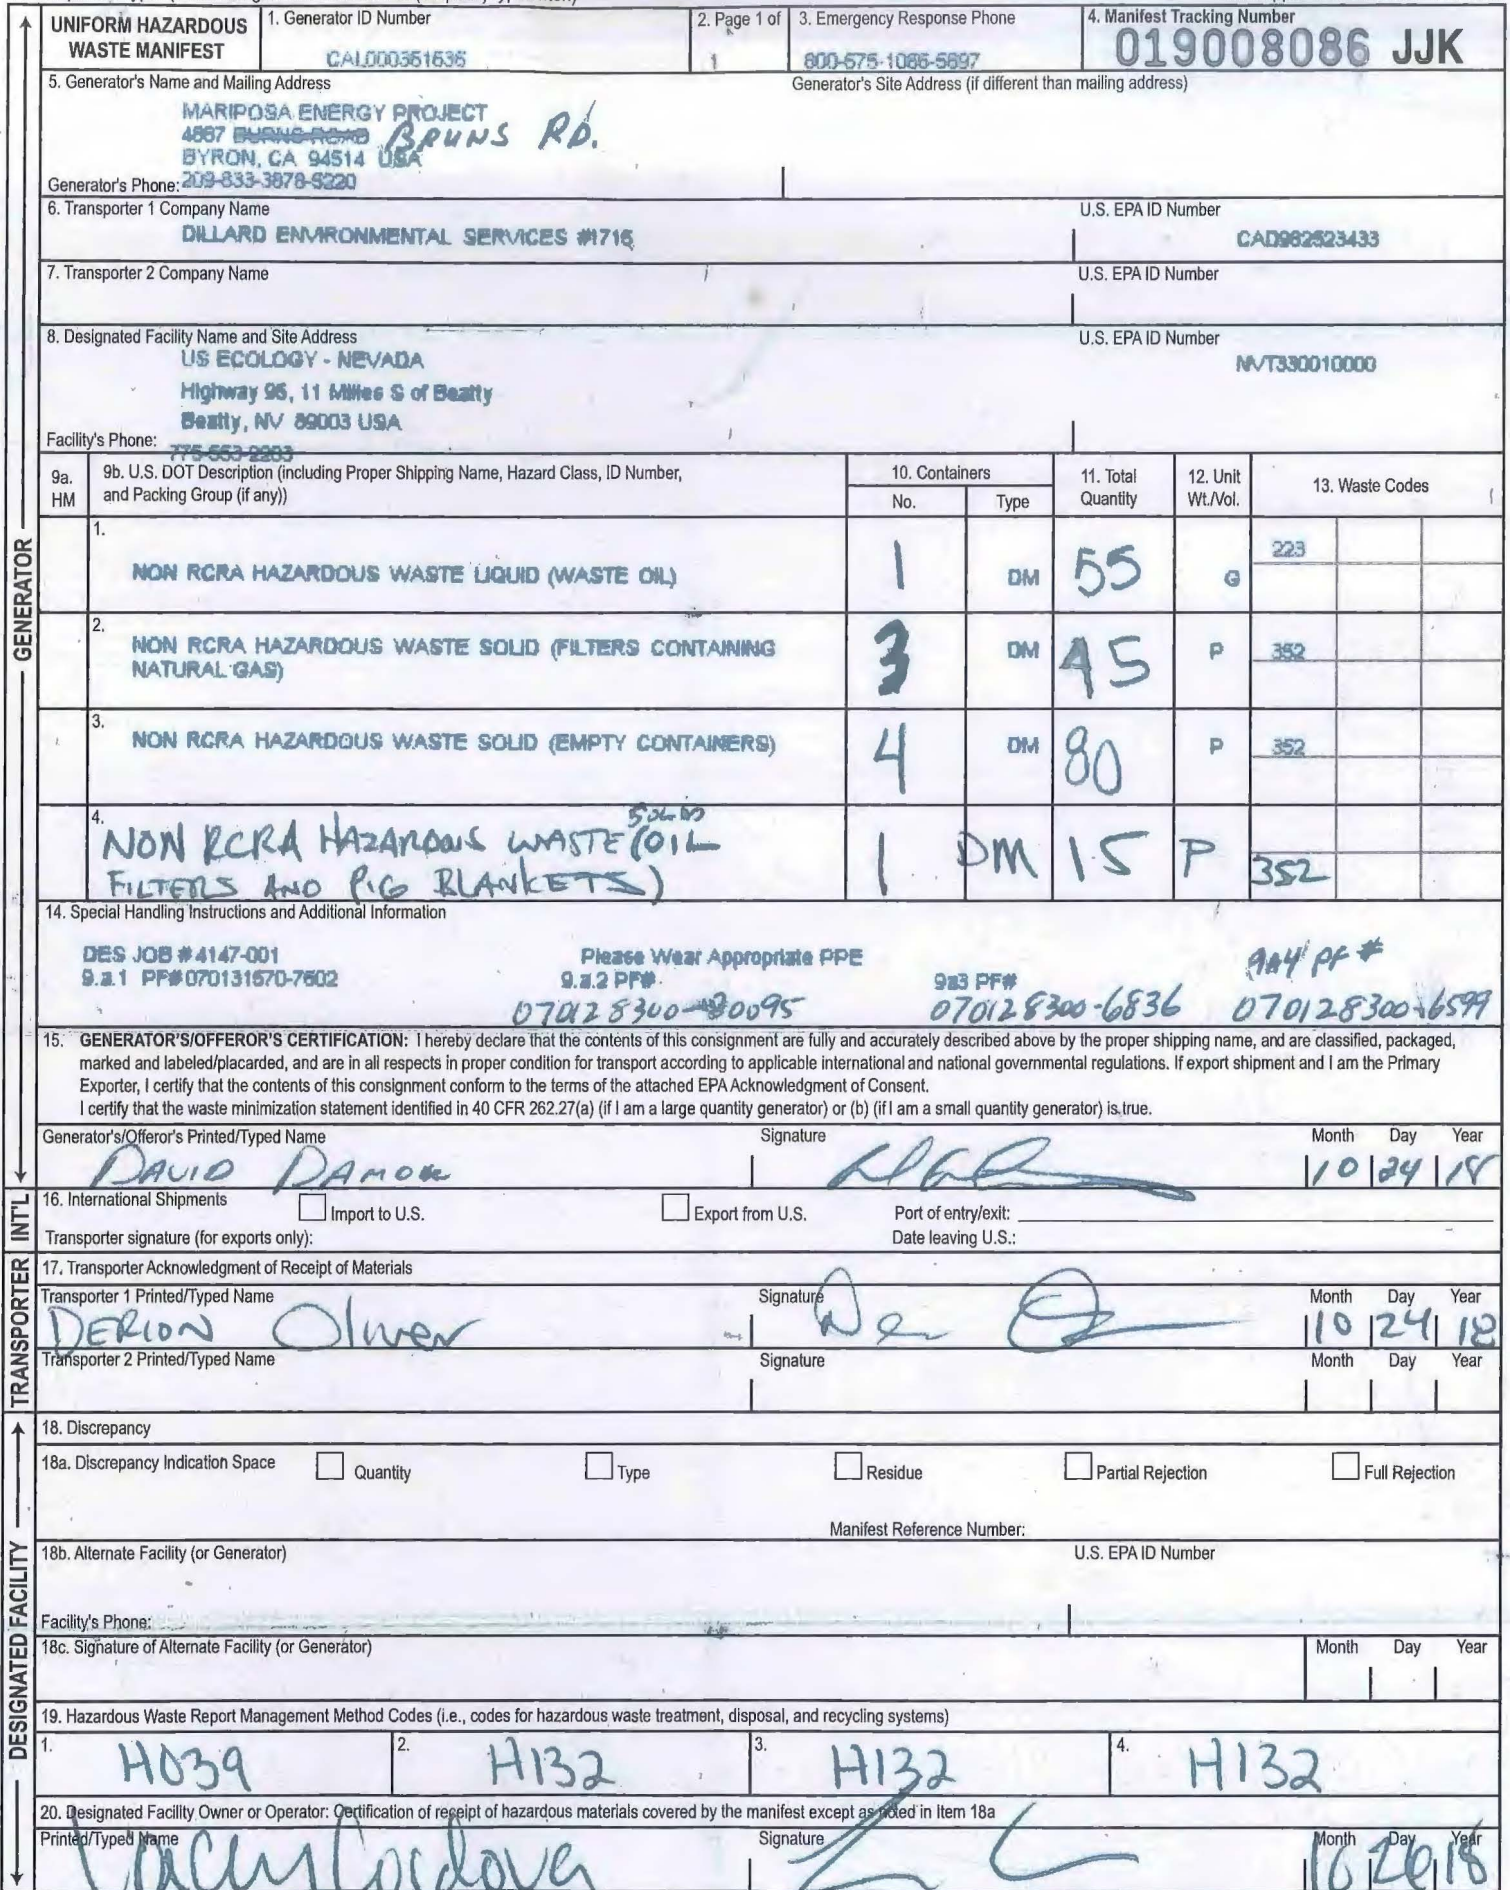 UNIFORM HAZARDOUS
WASTE MANIFEST
1. Generator ID Number
CAL000351636
2. Page 1 of
1
3. Emergency Response Phone
800-575-1086-5697
4. Manifest Tracking Number
019008086 JJK
5. Generator's Name and Mailing Address
Generator's Site Address (if different than mailing address)
MARIPOSA ENERGY PROJECT
4887 BURNS ROAD BRUNS RD.
BYRON, CA 94514 USA
Generator's Phone: 209-833-3878-5220
6. Transporter 1 Company Name
U.S. EPA ID Number
DILLARD ENVIRONMENTAL SERVICES #1716
CAD982523433
7. Transporter 2 Company Name
U.S. EPA ID Number
8. Designated Facility Name and Site Address
U.S. EPA ID Number
US ECOLOGY - NEVADA
NVT330010000
Highway 95, 11 Miles S of Beatty
Beatty, NV 89003 USA
Facility's Phone:
775-553-2203
9a.
HM
9b. U.S. DOT Description (including Proper Shipping Name, Hazard Class, ID Number,
and Packing Group (if any))
10. Containers
No.
Type
11. Total
Quantity
12. Unit
Wt./Vol.
13. Waste Codes
1.
NON RCRA HAZARDOUS WASTE LIQUID (WASTE OIL)
1 DM 55 G 223
2.
NON RCRA HAZARDOUS WASTE SOLID (FILTERS CONTAINING
NATURAL GAS)
3 DM 45 P 352
3.
NON RCRA HAZARDOUS WASTE SOLID (EMPTY CONTAINERS)
4 DM 80 P 352
4.
SOLID
NON RCRA HAZARDOUS WASTE (OIL
FILTERS AND PIG BLANKETS)
1 DM 15 P 352
14. Special Handling Instructions and Additional Information
DES JOB #4147-001
Please Wear Appropriate PPE
9A4 PF #
9.a.1 PF#070131570-7602
9.a.2 PF#
9a3 PF#
070128300-6836
070128300-6599
15. GENERATOR'S/OFFEROR'S CERTIFICATION: I hereby declare that the contents of this consignment are fully and accurately described above by the proper shipping name, and are classified, packaged,
marked and labeled/placarded, and are in all respects in proper condition for transport according to applicable international and national governmental regulations. If export shipment and I am the Primary
Exporter, I certify that the contents of this consignment conform to the terms of the attached EPA Acknowledgment of Consent.
I certify that the waste minimization statement identified in 40 CFR 262.27(a) (if I am a large quantity generator) or (b) (if I am a small quantity generator) is true.
Generator's/Offeror's Printed/Typed Name
Signature
Month Day Year
DAVID DAMON
10 24 18
16. International Shipments
Import to U.S.
Export from U.S.
Port of entry/exit:
Transporter signature (for exports only):
Date leaving U.S.:
17. Transporter Acknowledgment of Receipt of Materials
Transporter 1 Printed/Typed Name
Signature
Month Day Year
DERION Oliver
10 24 18
Transporter 2 Printed/Typed Name
Signature
Month Day Year
18. Discrepancy
18a. Discrepancy Indication Space
Quantity
Type
Residue
Partial Rejection
Full Rejection
Manifest Reference Number:
18b. Alternate Facility (or Generator)
U.S. EPA ID Number
Facility's Phone:
18c. Signature of Alternate Facility (or Generator)
Month Day Year
19. Hazardous Waste Report Management Method Codes (i.e., codes for hazardous waste treatment, disposal, and recycling systems)
1. H039
2. H132
3. H132
4. H132
20. Designated Facility Owner or Operator: Certification of receipt of hazardous materials covered by the manifest except as noted in Item 18a
Printed/Typed Name
Signature
Month Day Year
Cordova
10 26 18
GENERATOR
INT'L
TRANSPORTER
DESIGNATED FACILITY